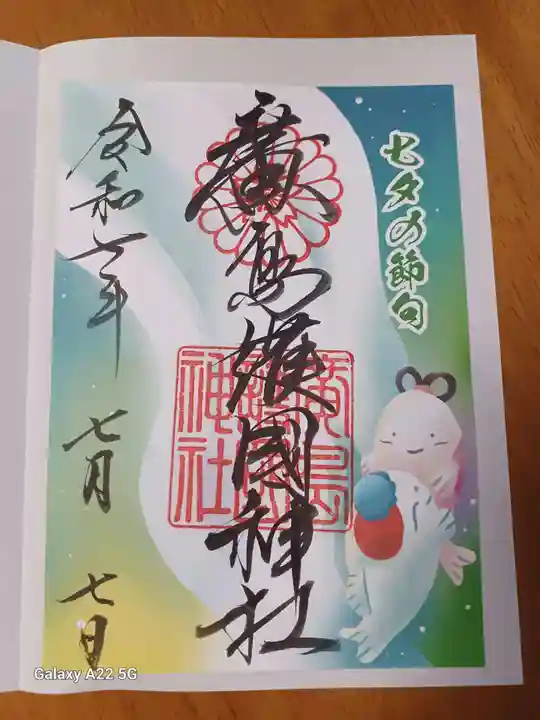 七夕の節句
廣島護國神社
廣島護國神社
令和七年 七月 七日
Galaxy A22 5G